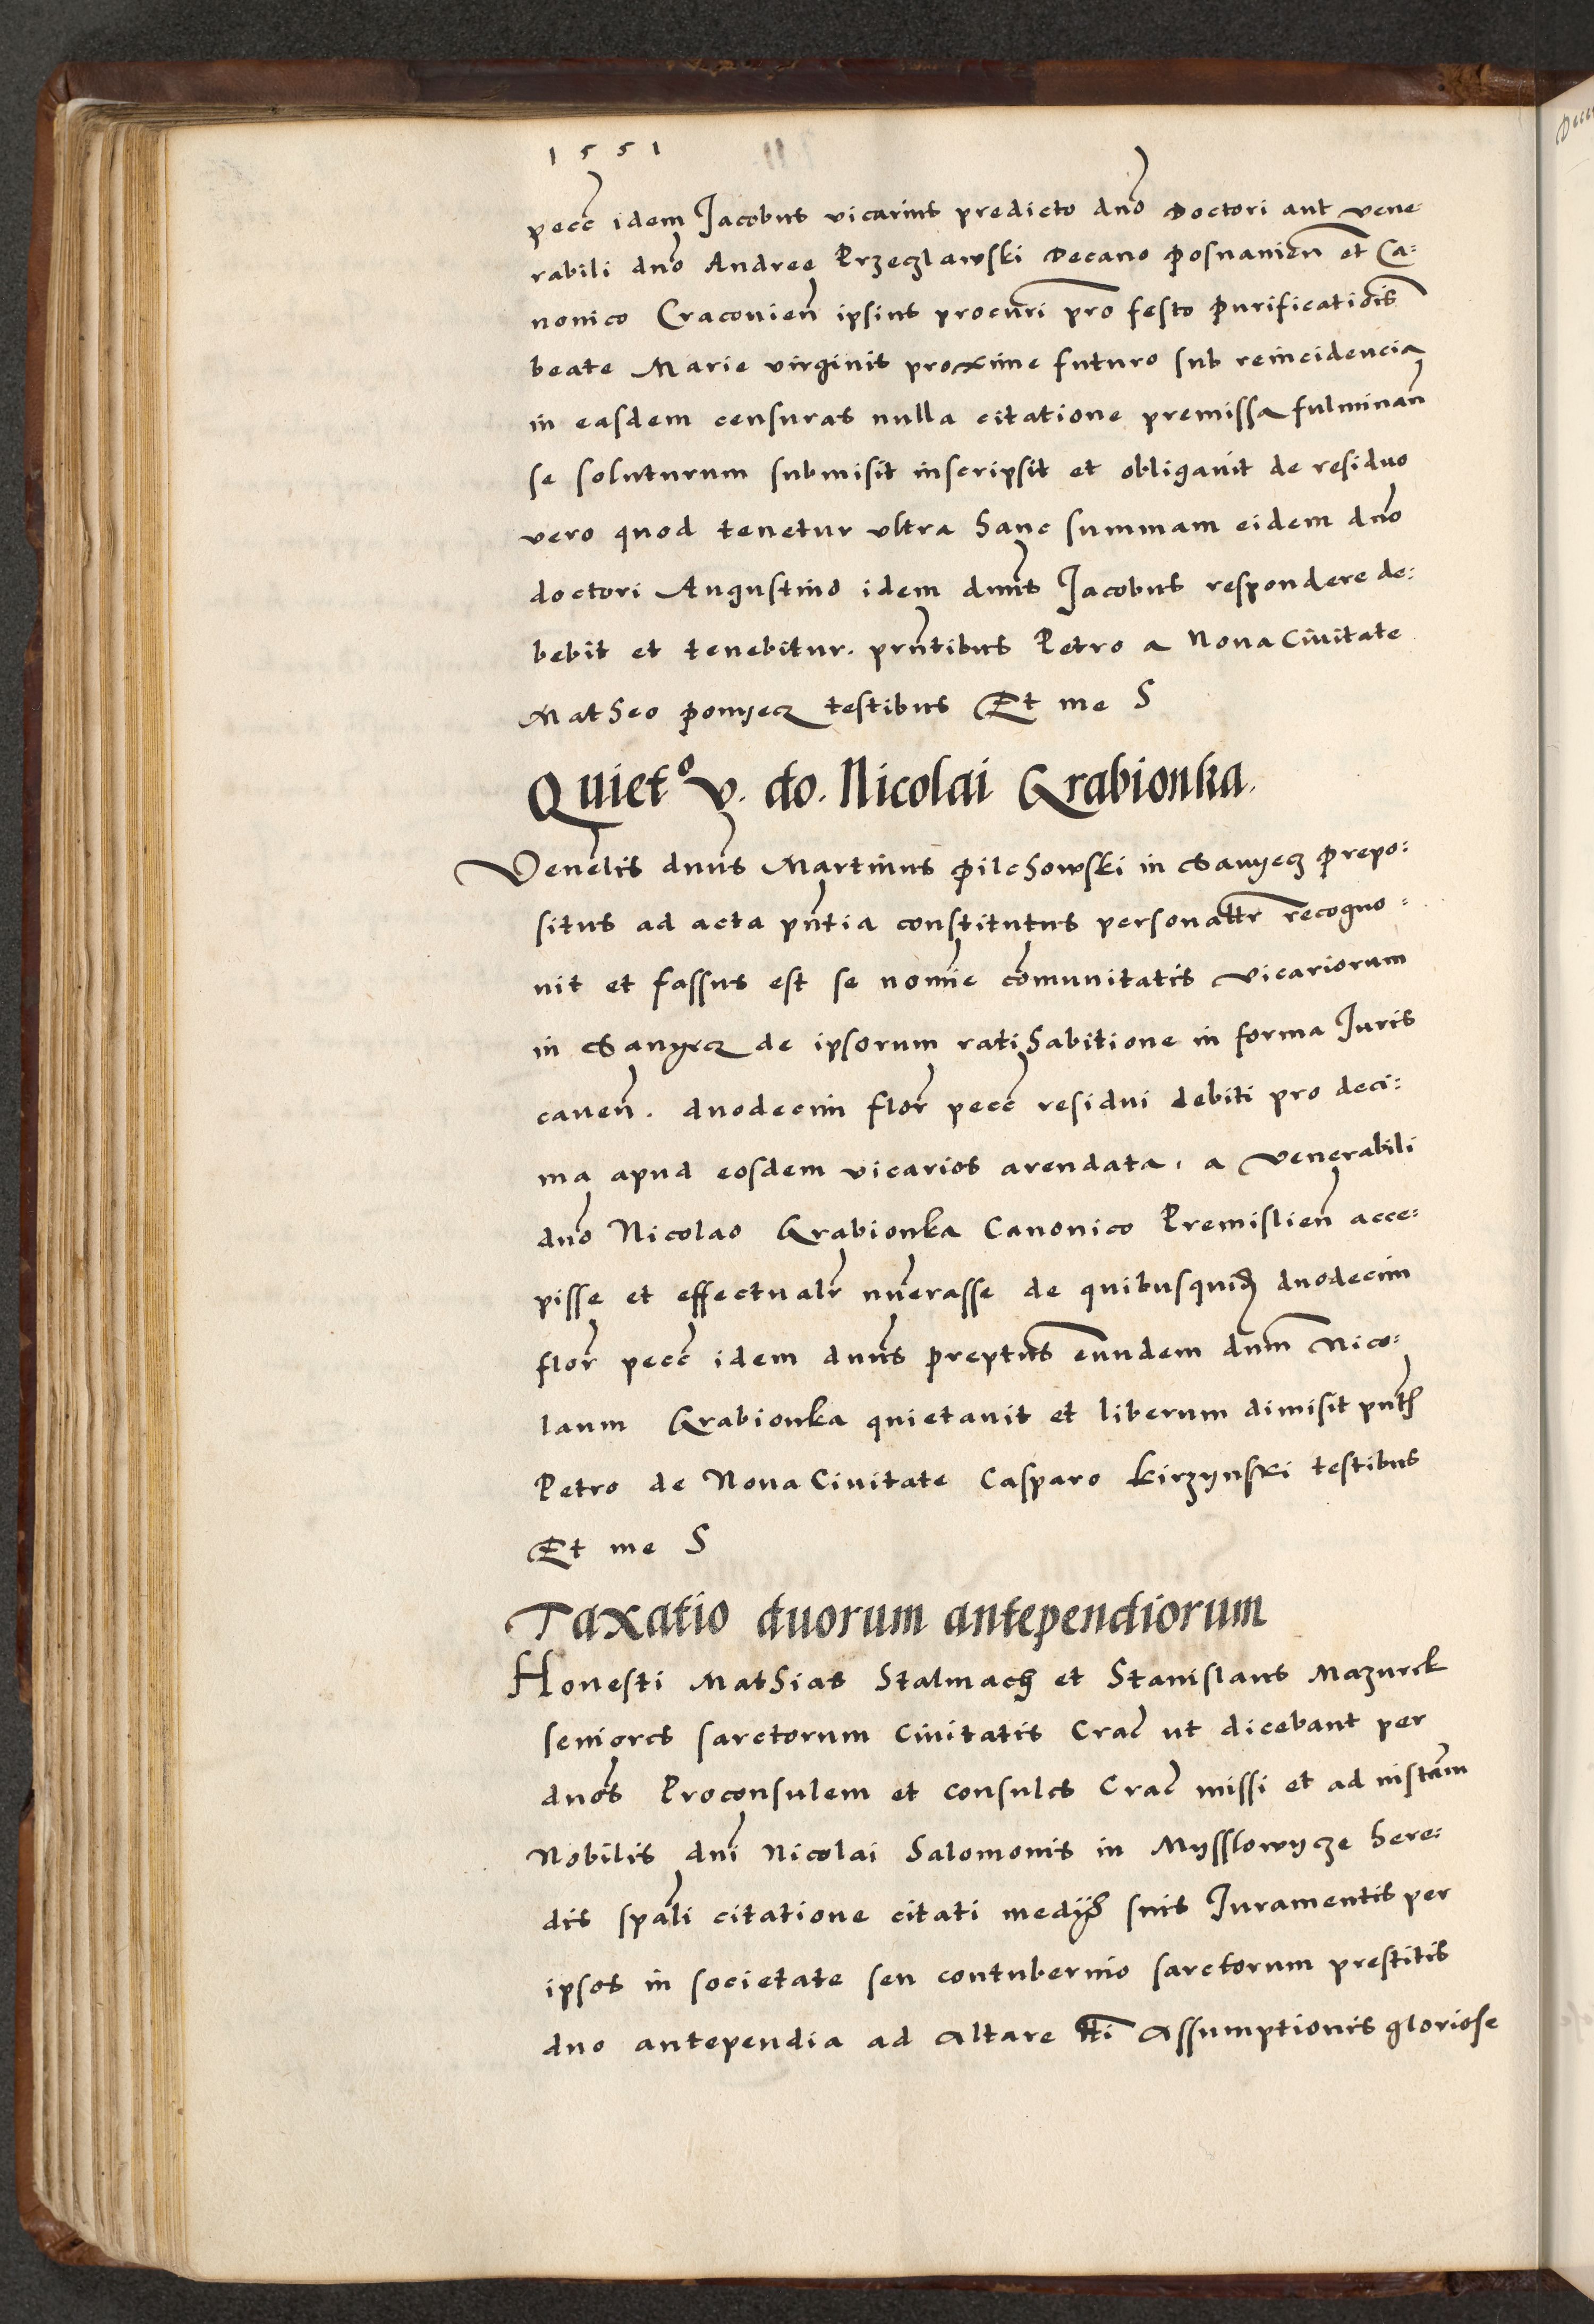 1551
pecc̄ idem Jacobus vicarius predicto dn̄o Doctori aut vene
rabili dn̄o Andree Przeczlawski Decano Posnanien̄ et Ca:
nonico Cracovien̄ ipsius procur̄i pro festo Purificatiōis
beate Marie virginis proxime futuro sub reincidencia
in easdem censuras nulla citatione premissa fulminan̄
se soluturum submisit inscripsit et obligavit de residuo
vero quod tenetur ultra hanc summam eidem dn̄o
doctori Augustino idem dn̄us Jacobus respondere de:
bebit et tenebitur. prn̄tibus Petro a Nova Civitate
Matheo Ponyecz testibus Et me S
Quietº v. do. Nicolai Grabionka.
Venel̄is dn̄us Martinus Pilchowski in Sanyecz Prepo:
situs ad acta pn̄tia constitutus personalr̄ recogno:
vit et fassus est se nomīe cōmunitatis vicariorum
in Sanyecz de ipsorum ratihabitione in forma Juris
caven̄. duodecim flor̄ pecc̄ residui debiti pro deci:
ma apud eosdem vicarios arendata, a venerabili
dn̄o Nicolao Grabionka Canonico Premislien̄ acce:
pisse et effectualr̄ nūerasse de quibusquid̄ duodecim
flor̄ pecc̄ idem dn̄us prepꝰtus eundem dn̄m Nico:
laum Grabionka quietavit et liberum dimisit pn̄t
Petro de Nova Civitate Casparo Kirzynski testibus
Et me S
Taxatio duorum antependiorum
Honesti Mathias Stalmach et Stanislaus Mazurek
seniores sartorum Civitatis Crac̄ ut dicebant per
dn̄os Proconsulem et consules Crac̄ missi et ad inst̄am
Nobilis dn̄i Nicolai Salomonis in Mysslowycze here:
dis spāli citatione citati medijs suis Juramentis per
ipsos in societate seu contubernio sartorum prestitis
duo antependia ad Altare tt̄i Assumptionis gloriose